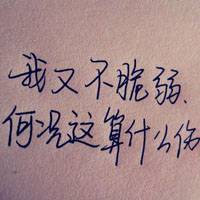 我又不脆弱、
何况这算什么伤